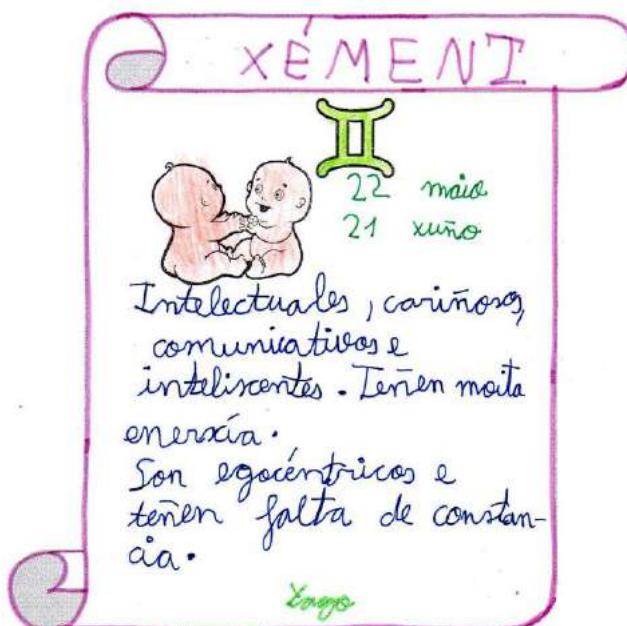 XÉMENI
22 maio
21 xuño
Intelectuales, cariñosos,
comunicativos e
intelixentes. Teñen moita
enerxía.
Son egocéntricos e
teñen falta de constan-
cia.
Yago